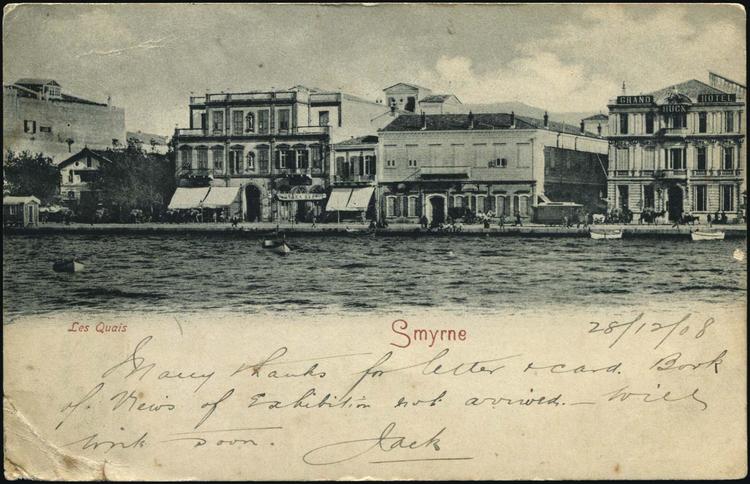 GRAND HOTEL
HUCK
Les Quais
Smyrne
28/12/08
Many thanks for letter & card. Book
of Views of Exhibition not arrived. – Will
soon.
Jack